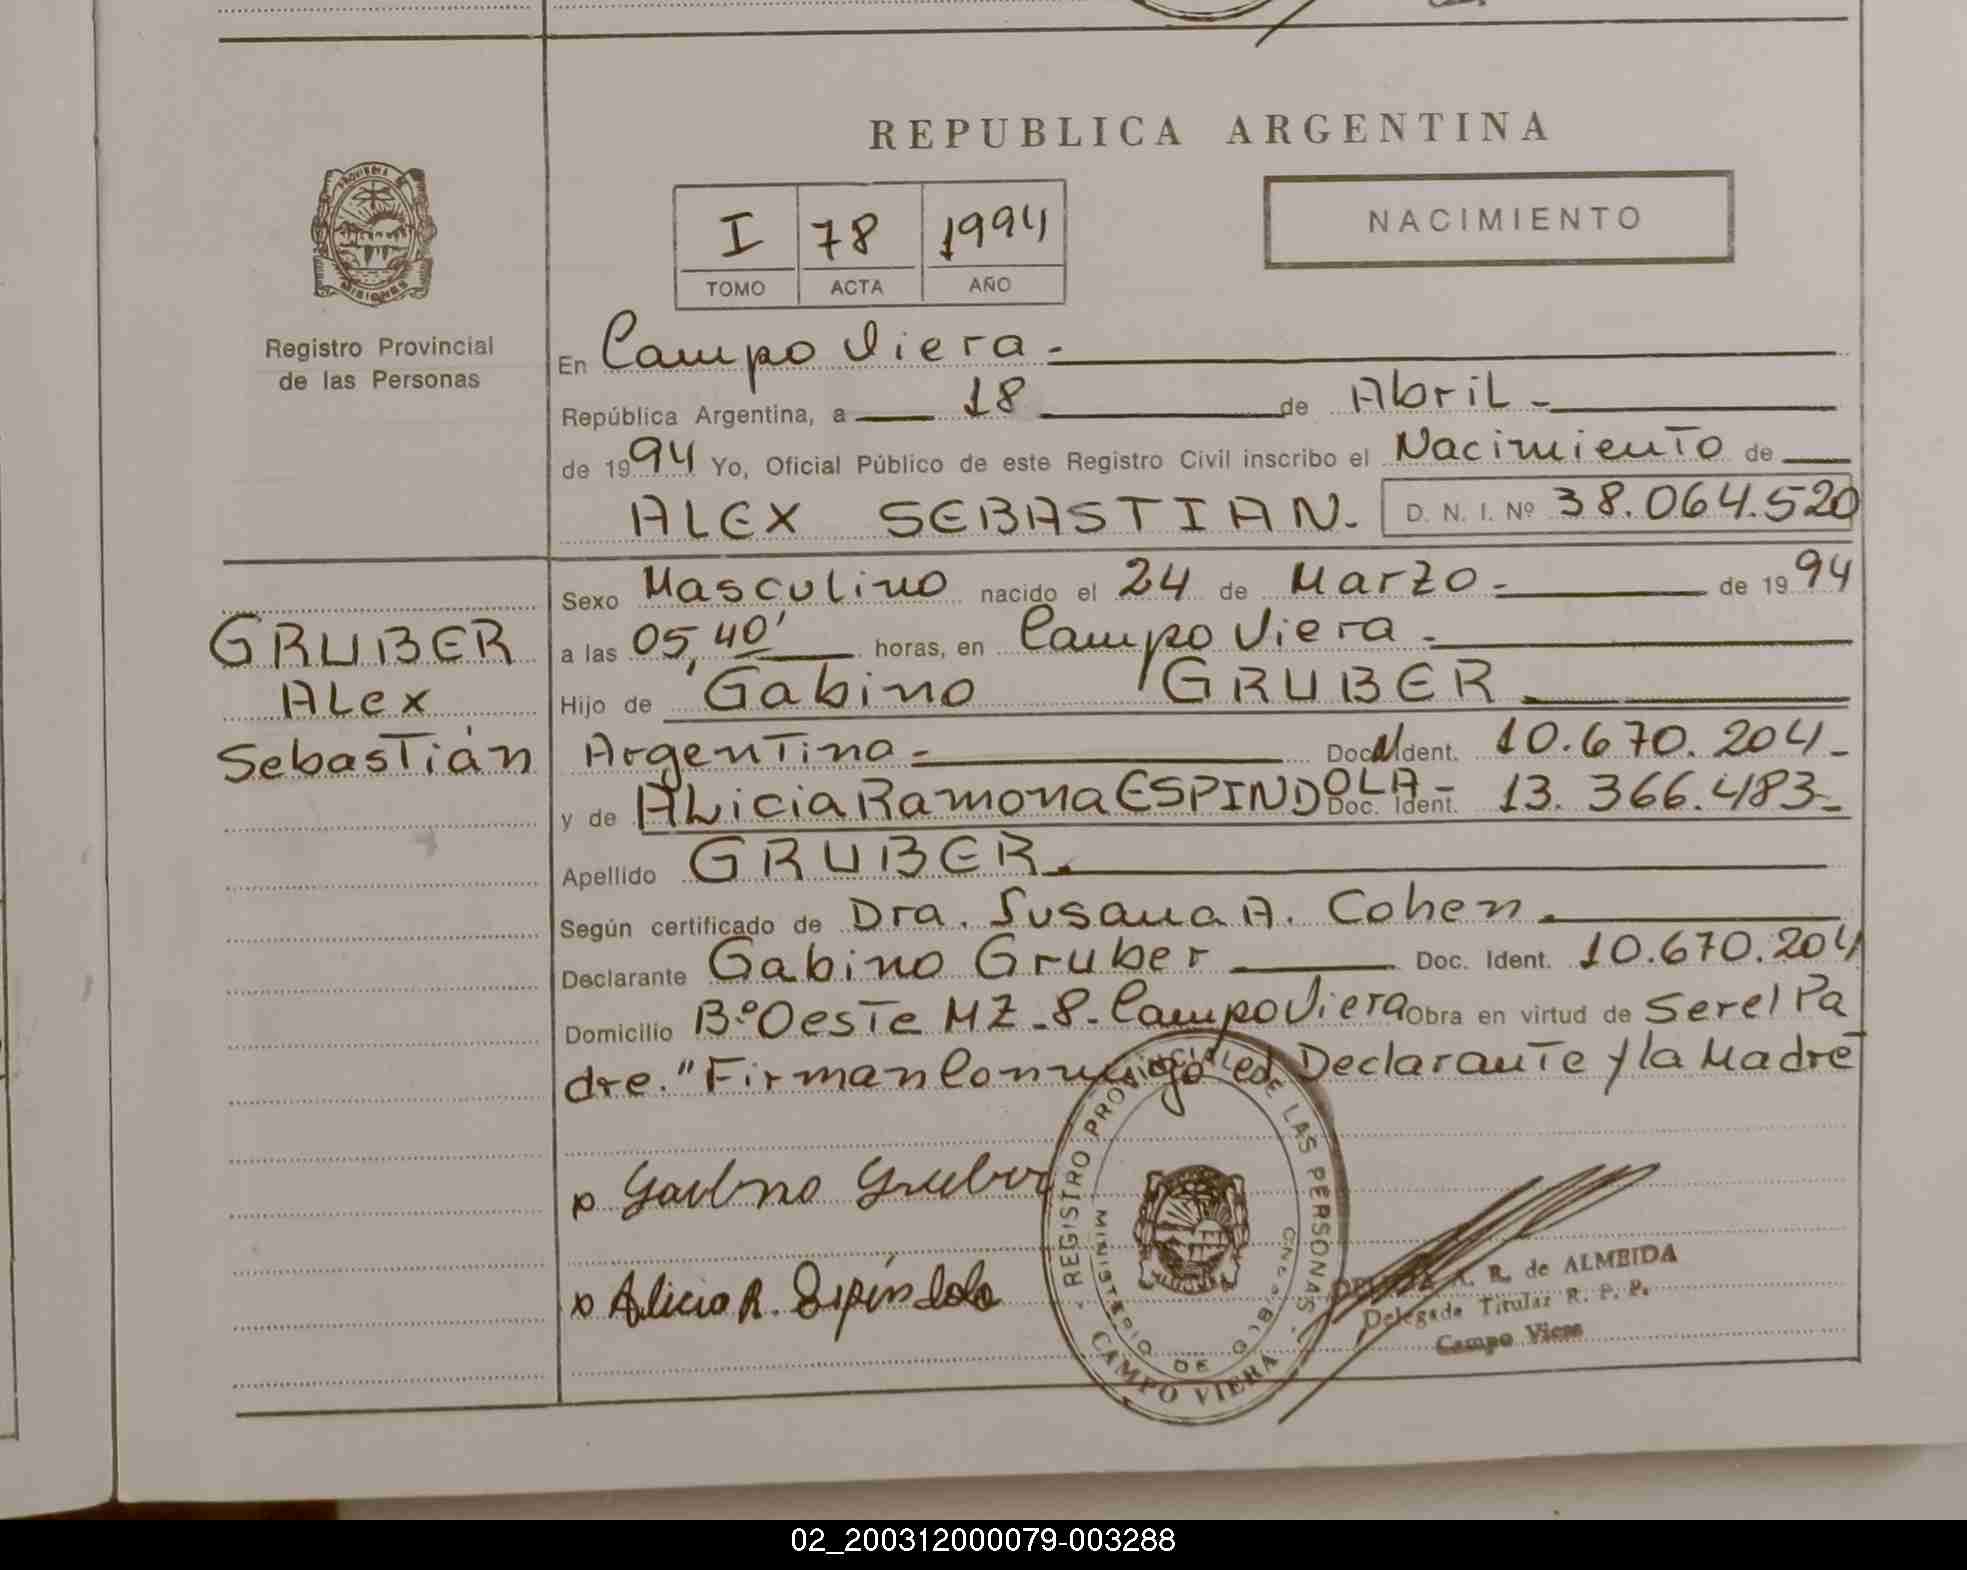 REPUBLICA ARGENTINA
PROVINCIA DE
MISIONES
Registro Provincial
de las Personas
I 78 1994
TOMO ACTA AÑO
NACIMIENTO
En Campo Viera.-
República Argentina, a 18 de Abril.-
de 1994 Yo, Oficial Público de este Registro Civil inscribo el Nacimiento de
ALEX SEBASTIAN.- D. N. I. Nº 38.064.520
GRUBER
Alex
Sebastián
Sexo Masculino nacido el 24 de Marzo.- de 1994
a las 05,40' horas, en Campo Viera.-
Hijo de Gabino GRUBER
Argentino.- Doc. Ident. 10.670.204-
y de Alicia Ramona ESPINDOLA- Doc. Ident. 13.366.483-
Apellido GRUBER.
Según certificado de Dra. Susana A. Cohen.
Declarante Gabino Gruber Doc. Ident. 10.670.204
Domicilio Bº Oeste MZ-8-Campo Viera Obra en virtud de Ser el Pa
dre. "Firman Conmigo" el Declarante y la Madre
Gabino Gruber
Alicia R. Espíndola
REGISTRO PROVINCIAL DE LAS PERSONAS
MINISTERIO DE GOBIERNO
CAMPO VIERA
A. R. de ALMEIDA
Delegada Titular R. P. P.
Campo Viera
02_200312000079-003288